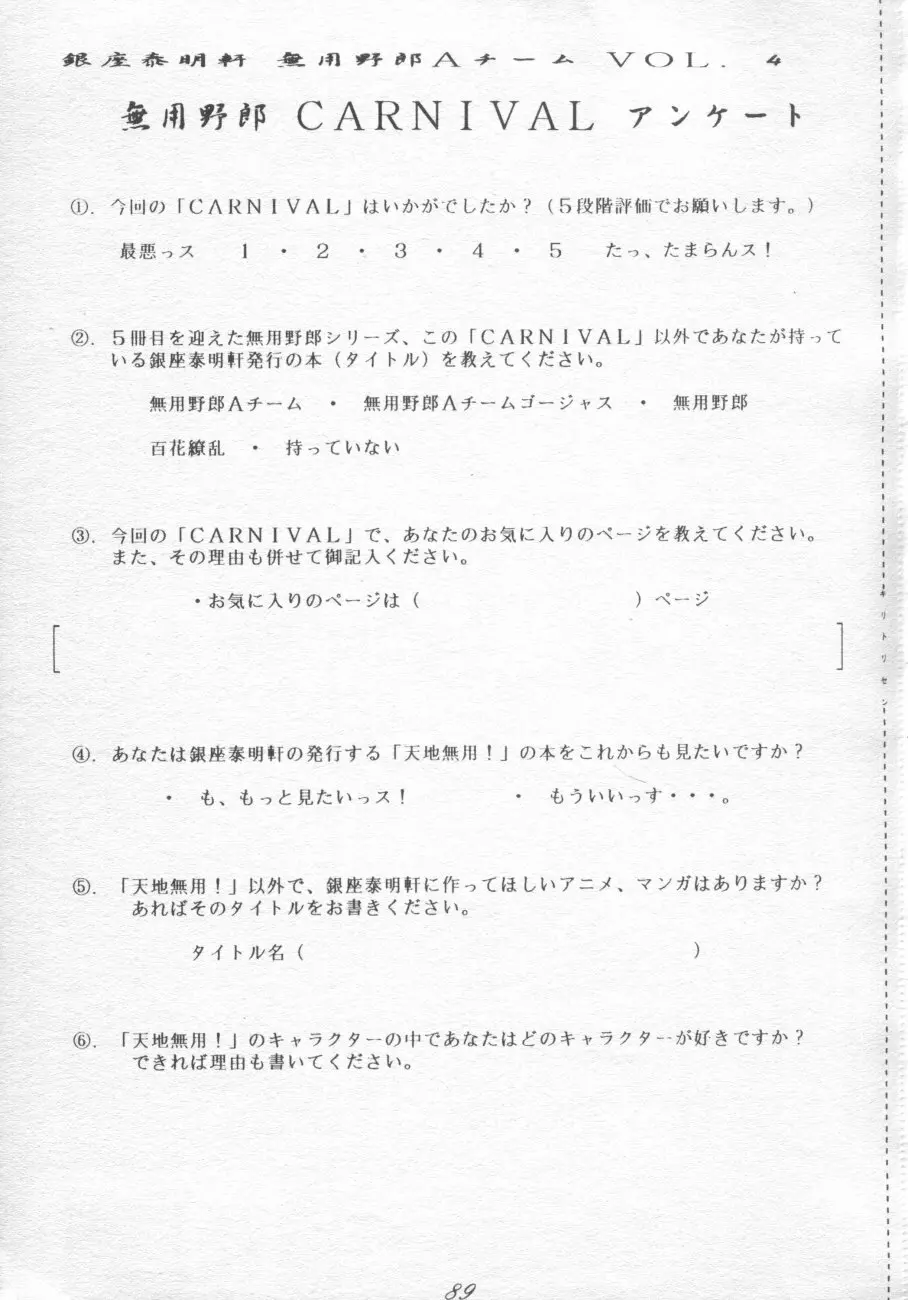 銀座泰明軒 無用野郎Aチーム VOL. 4
無用野郎 CARNIVAL アンケート
①. 今回の「CARNIVAL」はいかがでしたか?(5段階評価でお願いします。)
最悪っス 1 ・ 2 ・ 3 ・ 4 ・ 5 たっ、たまらんス!
②. 5冊目を迎えた無用野郎シリーズ、この「CARNIVAL」以外であなたが持って
いる銀座泰明軒発行の本(タイトル)を教えてください。
無用野郎Aチーム ・ 無用野郎Aチームゴージャス ・ 無用野郎
百花繚乱 ・ 持っていない
③. 今回の「CARNIVAL」で、あなたのお気に入りのページを教えてください。
また、その理由も併せて御記入ください。
・お気に入りのページは( )ページ
[ ]
④. あなたは銀座泰明軒の発行する「天地無用!」の本をこれからも見たいですか?
・ も、もっと見たいっス! ・ もういいっす・・・。
⑤. 「天地無用!」以外で、銀座泰明軒に作ってほしいアニメ、マンガはありますか?
あればそのタイトルをお書きください。
タイトル名( )
⑥. 「天地無用!」のキャラクターの中であなたはどのキャラクターが好きですか?
できれば理由も書いてください。
キリトリセン
89